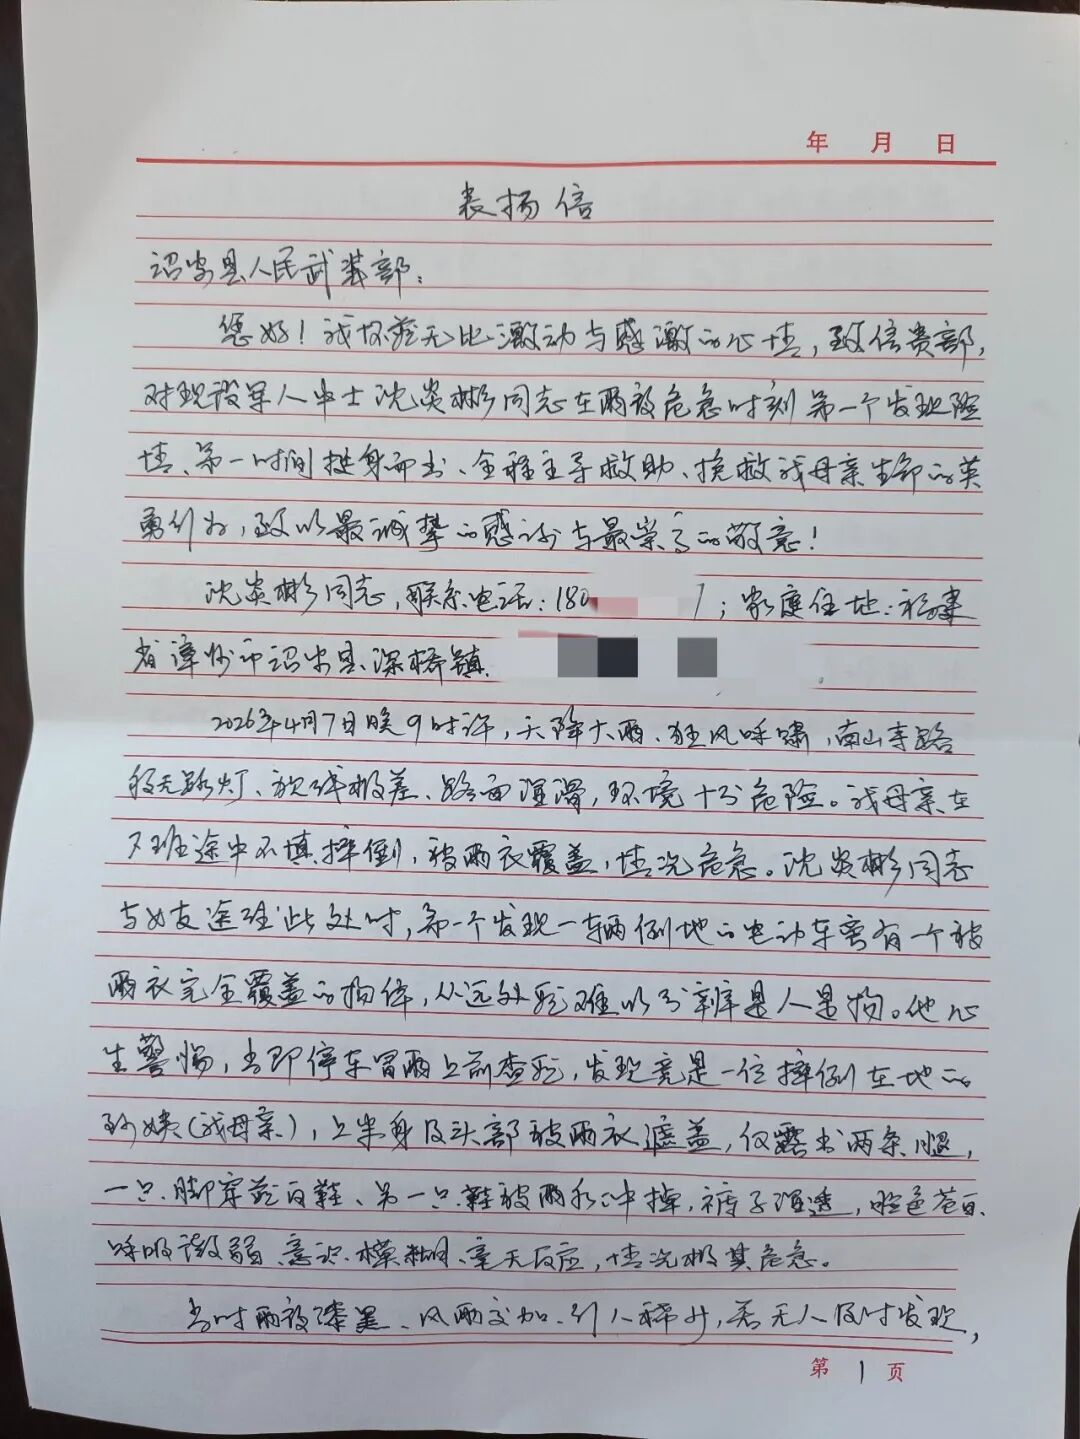 年 月 日
表扬信
诏安县人民武装部：
您好！我怀着无比激动与感激的心情，致信贵部，
对现役军人中士沈炎彬同志在雨夜危急时刻第一个发现险
情、第一时间挺身而出、全程主导救助、挽救我母亲生命的英
勇行为，致以最诚挚的感谢与最崇高的敬意！
沈炎彬同志，联系电话：180 1；家庭住地：福建
省漳州市诏安县深桥镇 。
2026年4月7日晚9时许，天降大雨、狂风呼啸，南山寺路
段无路灯、视线极差、路面湿滑，环境十分危险。我母亲在
下班途中不慎摔倒，被雨衣覆盖，情况危急。沈炎彬同志
与女友途经此处时，第一个发现一辆倒地的电动车旁有一个被
雨衣完全覆盖的物体，从远处看难以分辨是人是物。他心
生警惕，当即停车冒雨上前查看，发现竟是一位摔倒在地的
阿姨（我母亲），上半身及头部被雨衣遮盖，仅露出两条腿，
一只脚穿着白鞋、另一只鞋被雨水冲掉，裤子湿透，脸色苍白、
呼吸微弱、意识模糊、毫无反应，情况极其危急。
当时雨夜漆黑、风雨交加、行人稀少，若无人及时发现，
第 1 页